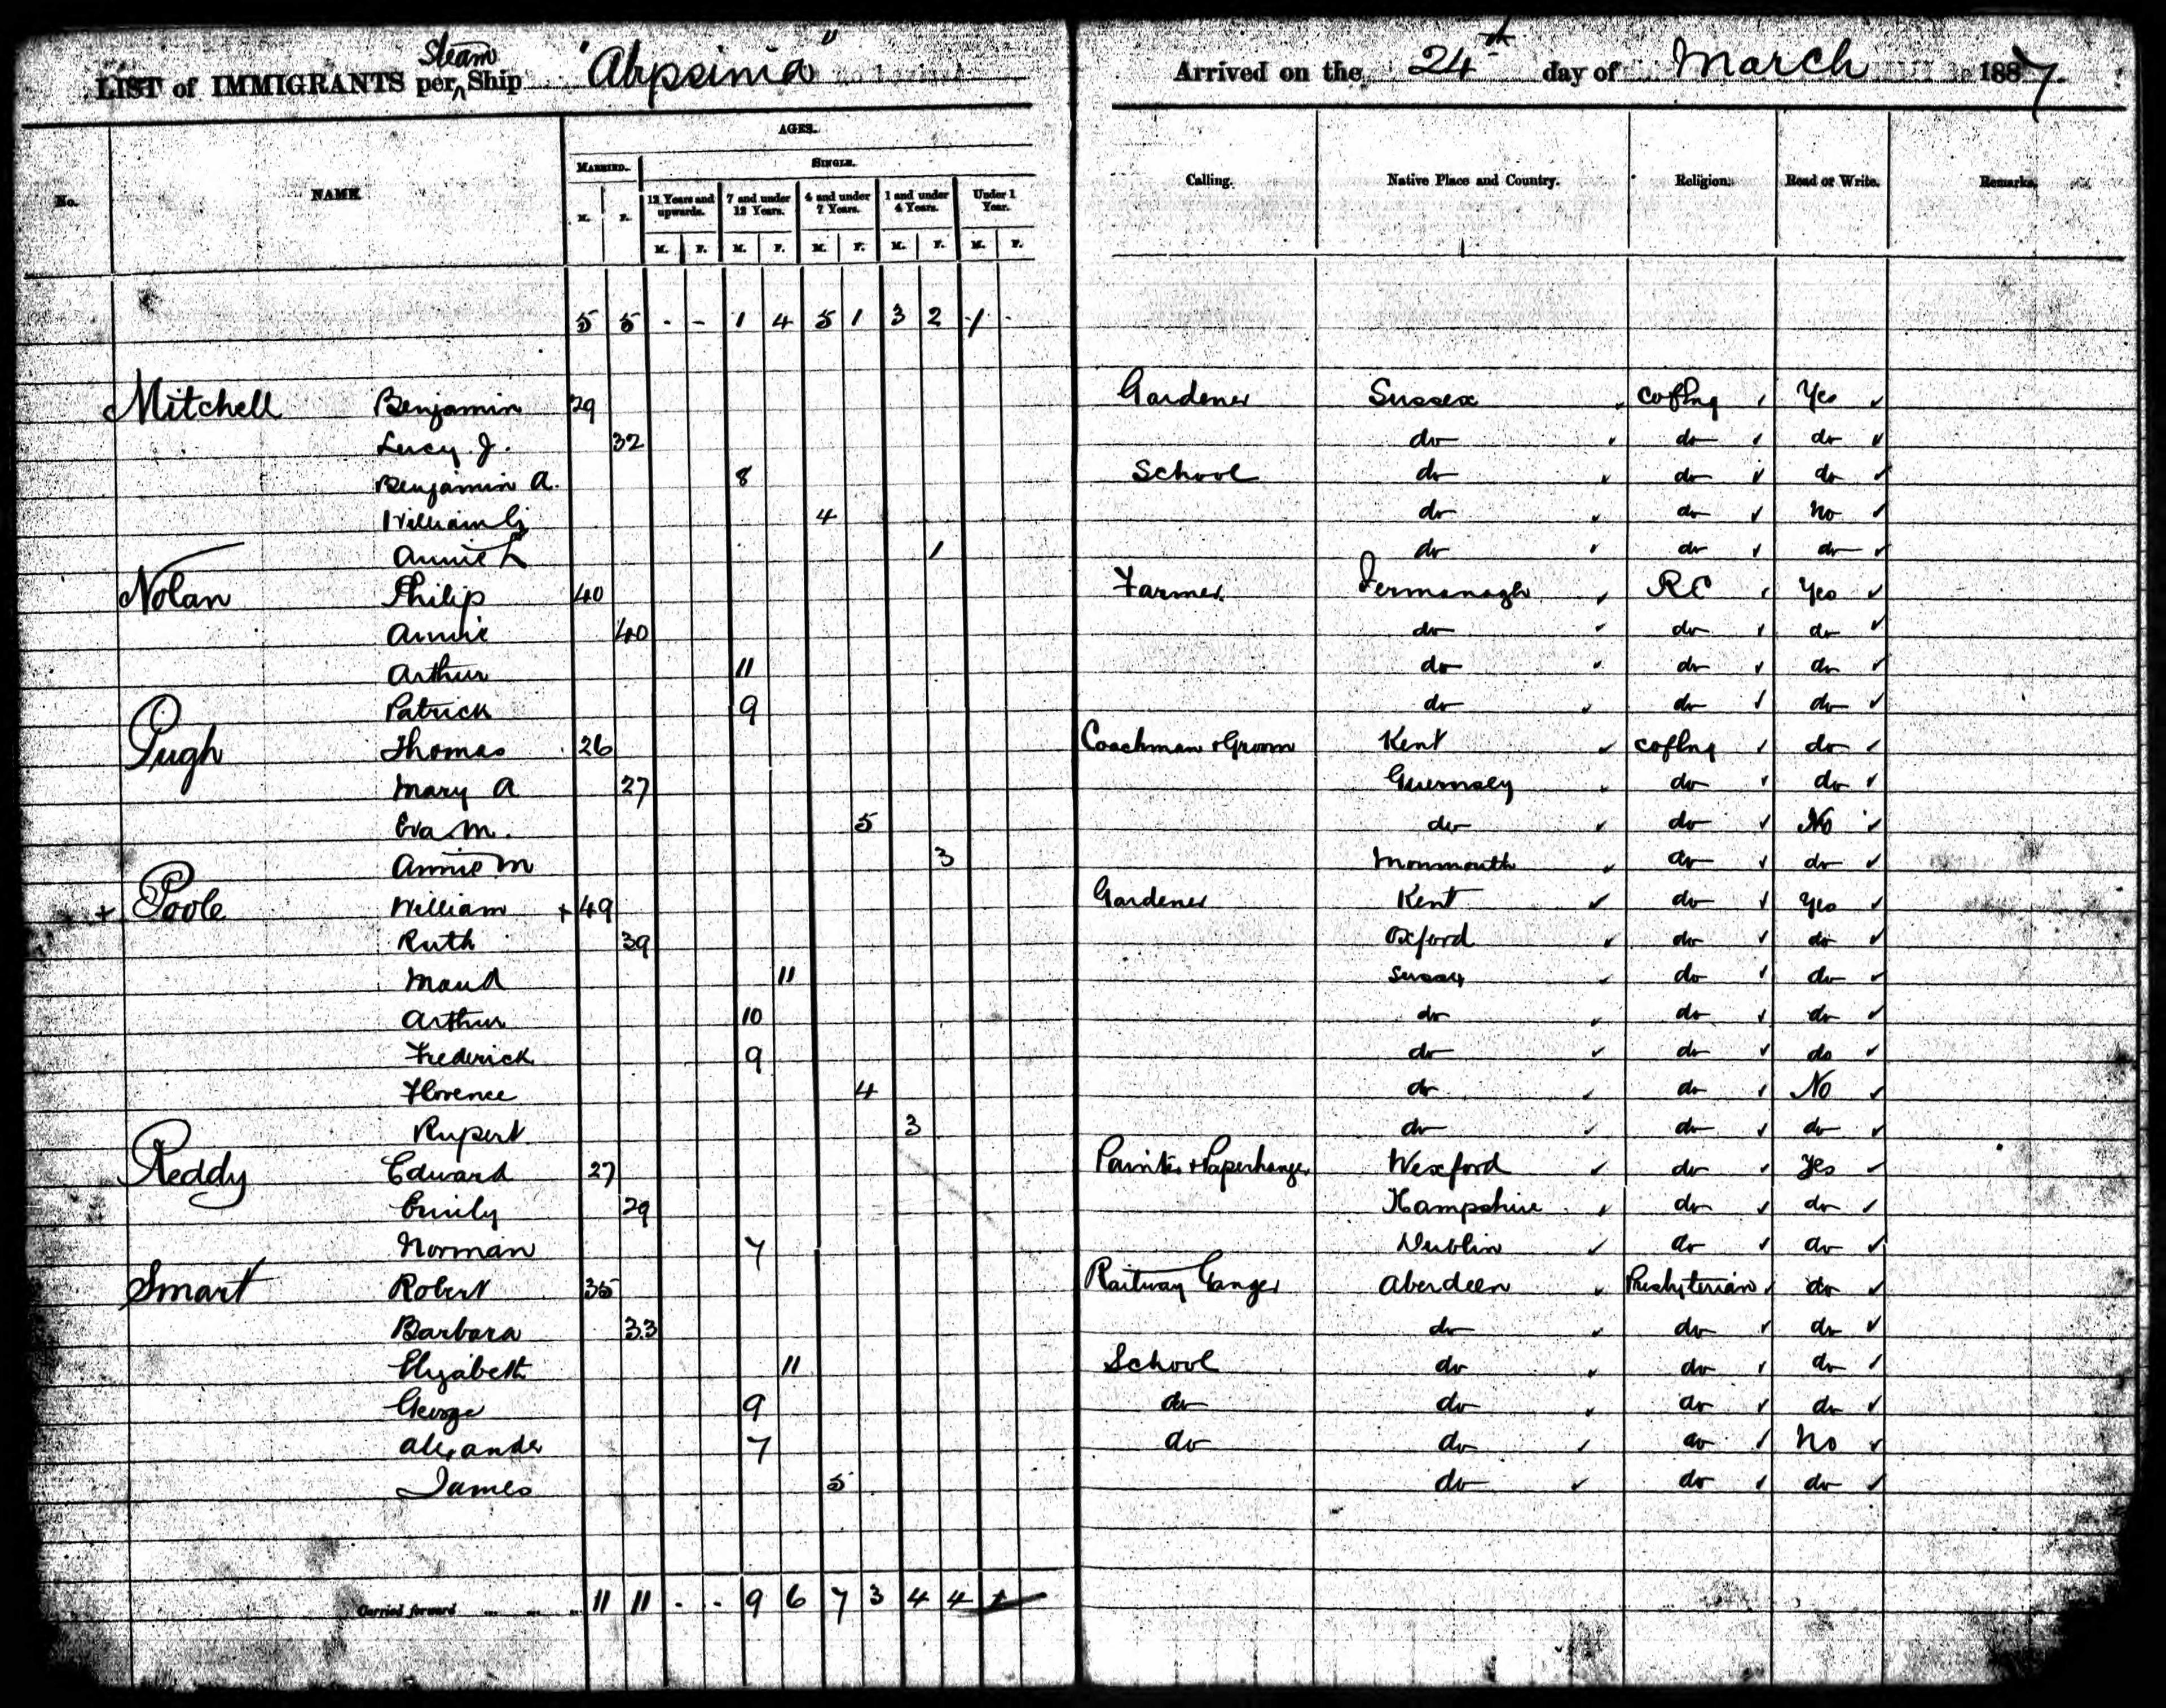 LIST of IMMIGRANTS per Steam Ship "Abyssinia" Arrived on the 24th day of March 1887.
AGES.
MARRIED. SINGLE.
No. NAME Calling. Native Place and Country. Religion. Read or Write. Remarks.
M. F. 12 Years and upwards. 7 and under 12 Years. 4 and under 7 Years. 1 and under 4 Years. Under 1 Year.
M. F. M. F. M. F. M. F. M. F.
5 5 - - 1 4 5 1 3 2 1 -
Mitchell Benjamin 29 Gardener Sussex CofEng Yes
Lucy J. 32 do do do
Benjamin A. 8 School do do do
William G 4 do do No
Annie L 1 do do do
Nolan Philip 40 Farmer Fermanagh RC Yes
Annie 40 do do do
Arthur 11 do do do
Patrick 9 do do do
Pugh Thomas 26 Coachman & Groom Kent CofEng do
Mary A 27 Guernsey do do
Eva M. 5 do do No
Annie M 3 Monmouth do do
+ Poole William + 49 Gardener Kent do Yes
Ruth 39 Oxford do do
Maud 11 Sussex do do
Arthur 10 do do do
Frederick 9 do do do
Florence 4 do do No
Rupert 3 do do do
Reddy Edward 27 Painter & Paperhanger Wexford do Yes
Emily 29 Hampshire do do
Norman 7 Dublin do do
Smart Robert 35 Railway Ganger Aberdeen Presbyterian do
Barbara 33 do do do
Elizabeth 11 School do do do
George 9 do do do do
Alexander 7 do do do No
James 5 do do do
Carried forward ... ... ... 11 11 - - 9 6 7 3 4 4 1